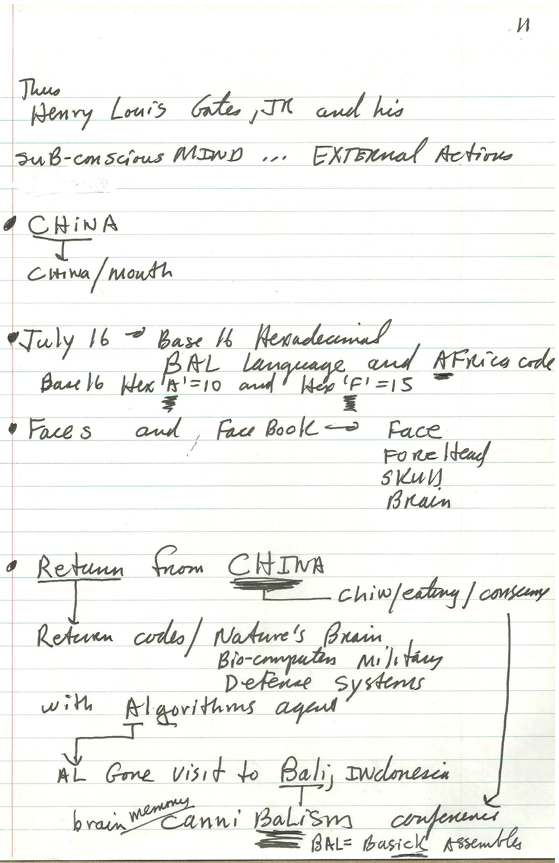 11
Thus
Henry Louis Gates, JR and his
SUB-conscious MIND ... EXTERNAL Actions
• CHINA
China/mouth
• July 16 → Base 16 Hexadecimal
BAL Language and AFRica code
Base 16 Hex 'A'=10 and Hex 'F'=15
• Faces and, FaceBook → Face
FOREHead
SKULL
Brain
• Return from CHINA
chin/eating/consume
Return codes/ Nature's Brain
Bio-computers Military
Defense Systems
with Algorithms agent
AL Gone visit to Bali, INDonesia
brain memory Canni BaLism conference
BAL= Basick Assembler